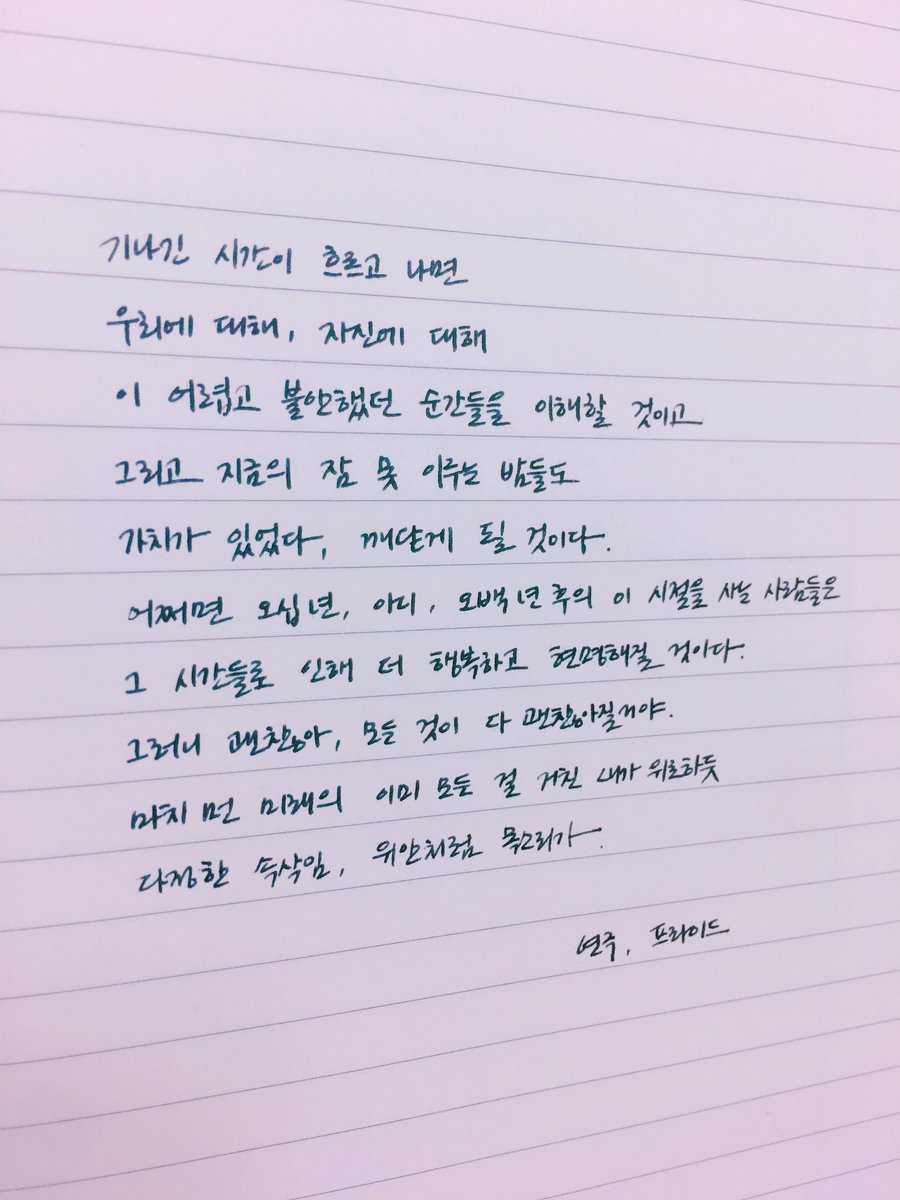 기나긴 시간이 흐르고 나면
우리에 대해, 자신에 대해
이 어렵고 불안했던 순간들을 이해할 것이고
그리고 지금의 잠 못 이루는 밤들도
가치가 있었다, 깨닫게 될 것이다.
어쩌면 오십 년, 아니, 오백 년 후의 이 시절을 사는 사람들은
그 시간들로 인해 더 행복하고 현명해질 것이다.
그러니 괜찮아, 모든 것이 다 괜찮아질거야.
마치 먼 미래의 이미 모든 걸 거친 내가 위로하듯
다정한 속삭임, 위안처럼 목소리가.
연극, 프라이드